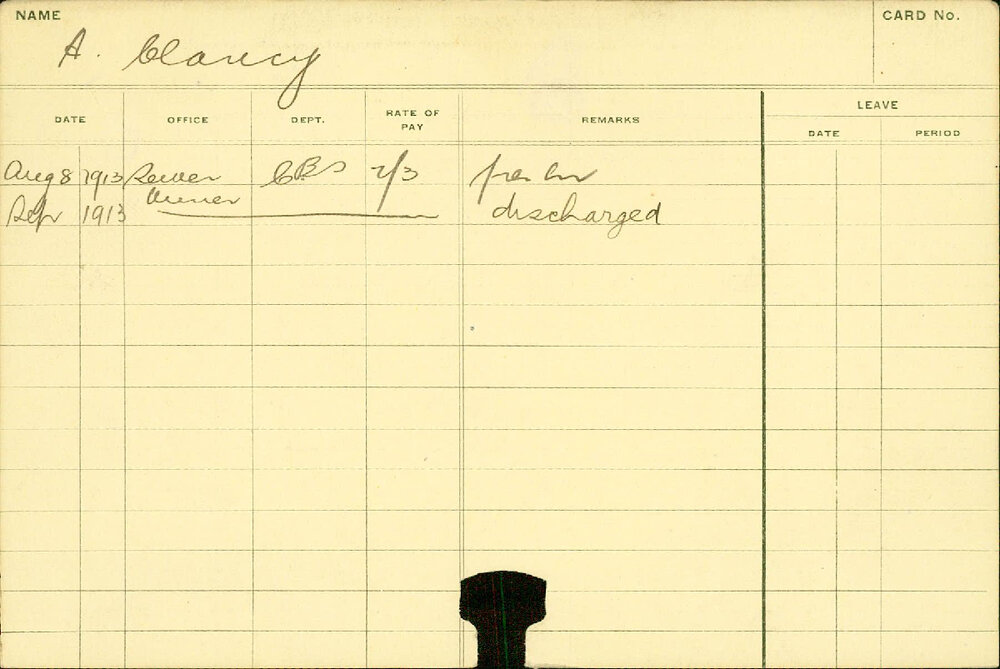 NAME
CARD No.
A. Clancy
DATE
OFFICE
DEPT.
RATE OF PAY
REMARKS
LEAVE
DATE
PERIOD
Aug 8 1913 Sewer Miner CBS 2/3 per hr
Sep 1913 discharged